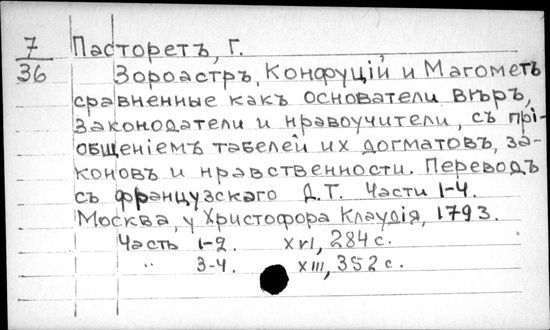 7
36
Пасторетъ, Г.
Зороастръ, Конфуцій и Магометъ
сравненные какъ основатели вѣръ,
законодатели и нравоучители, съ прі-
общеніемъ табелей их догматовъ, за-
коновъ и нравственности. Переводъ
съ французскаго Д.Т. Части 1-4.
Москва, у Христофора Клаудія, 1793.
Часть 1-2. XVI, 284 с.
" 3-4. XIII, 352 с.